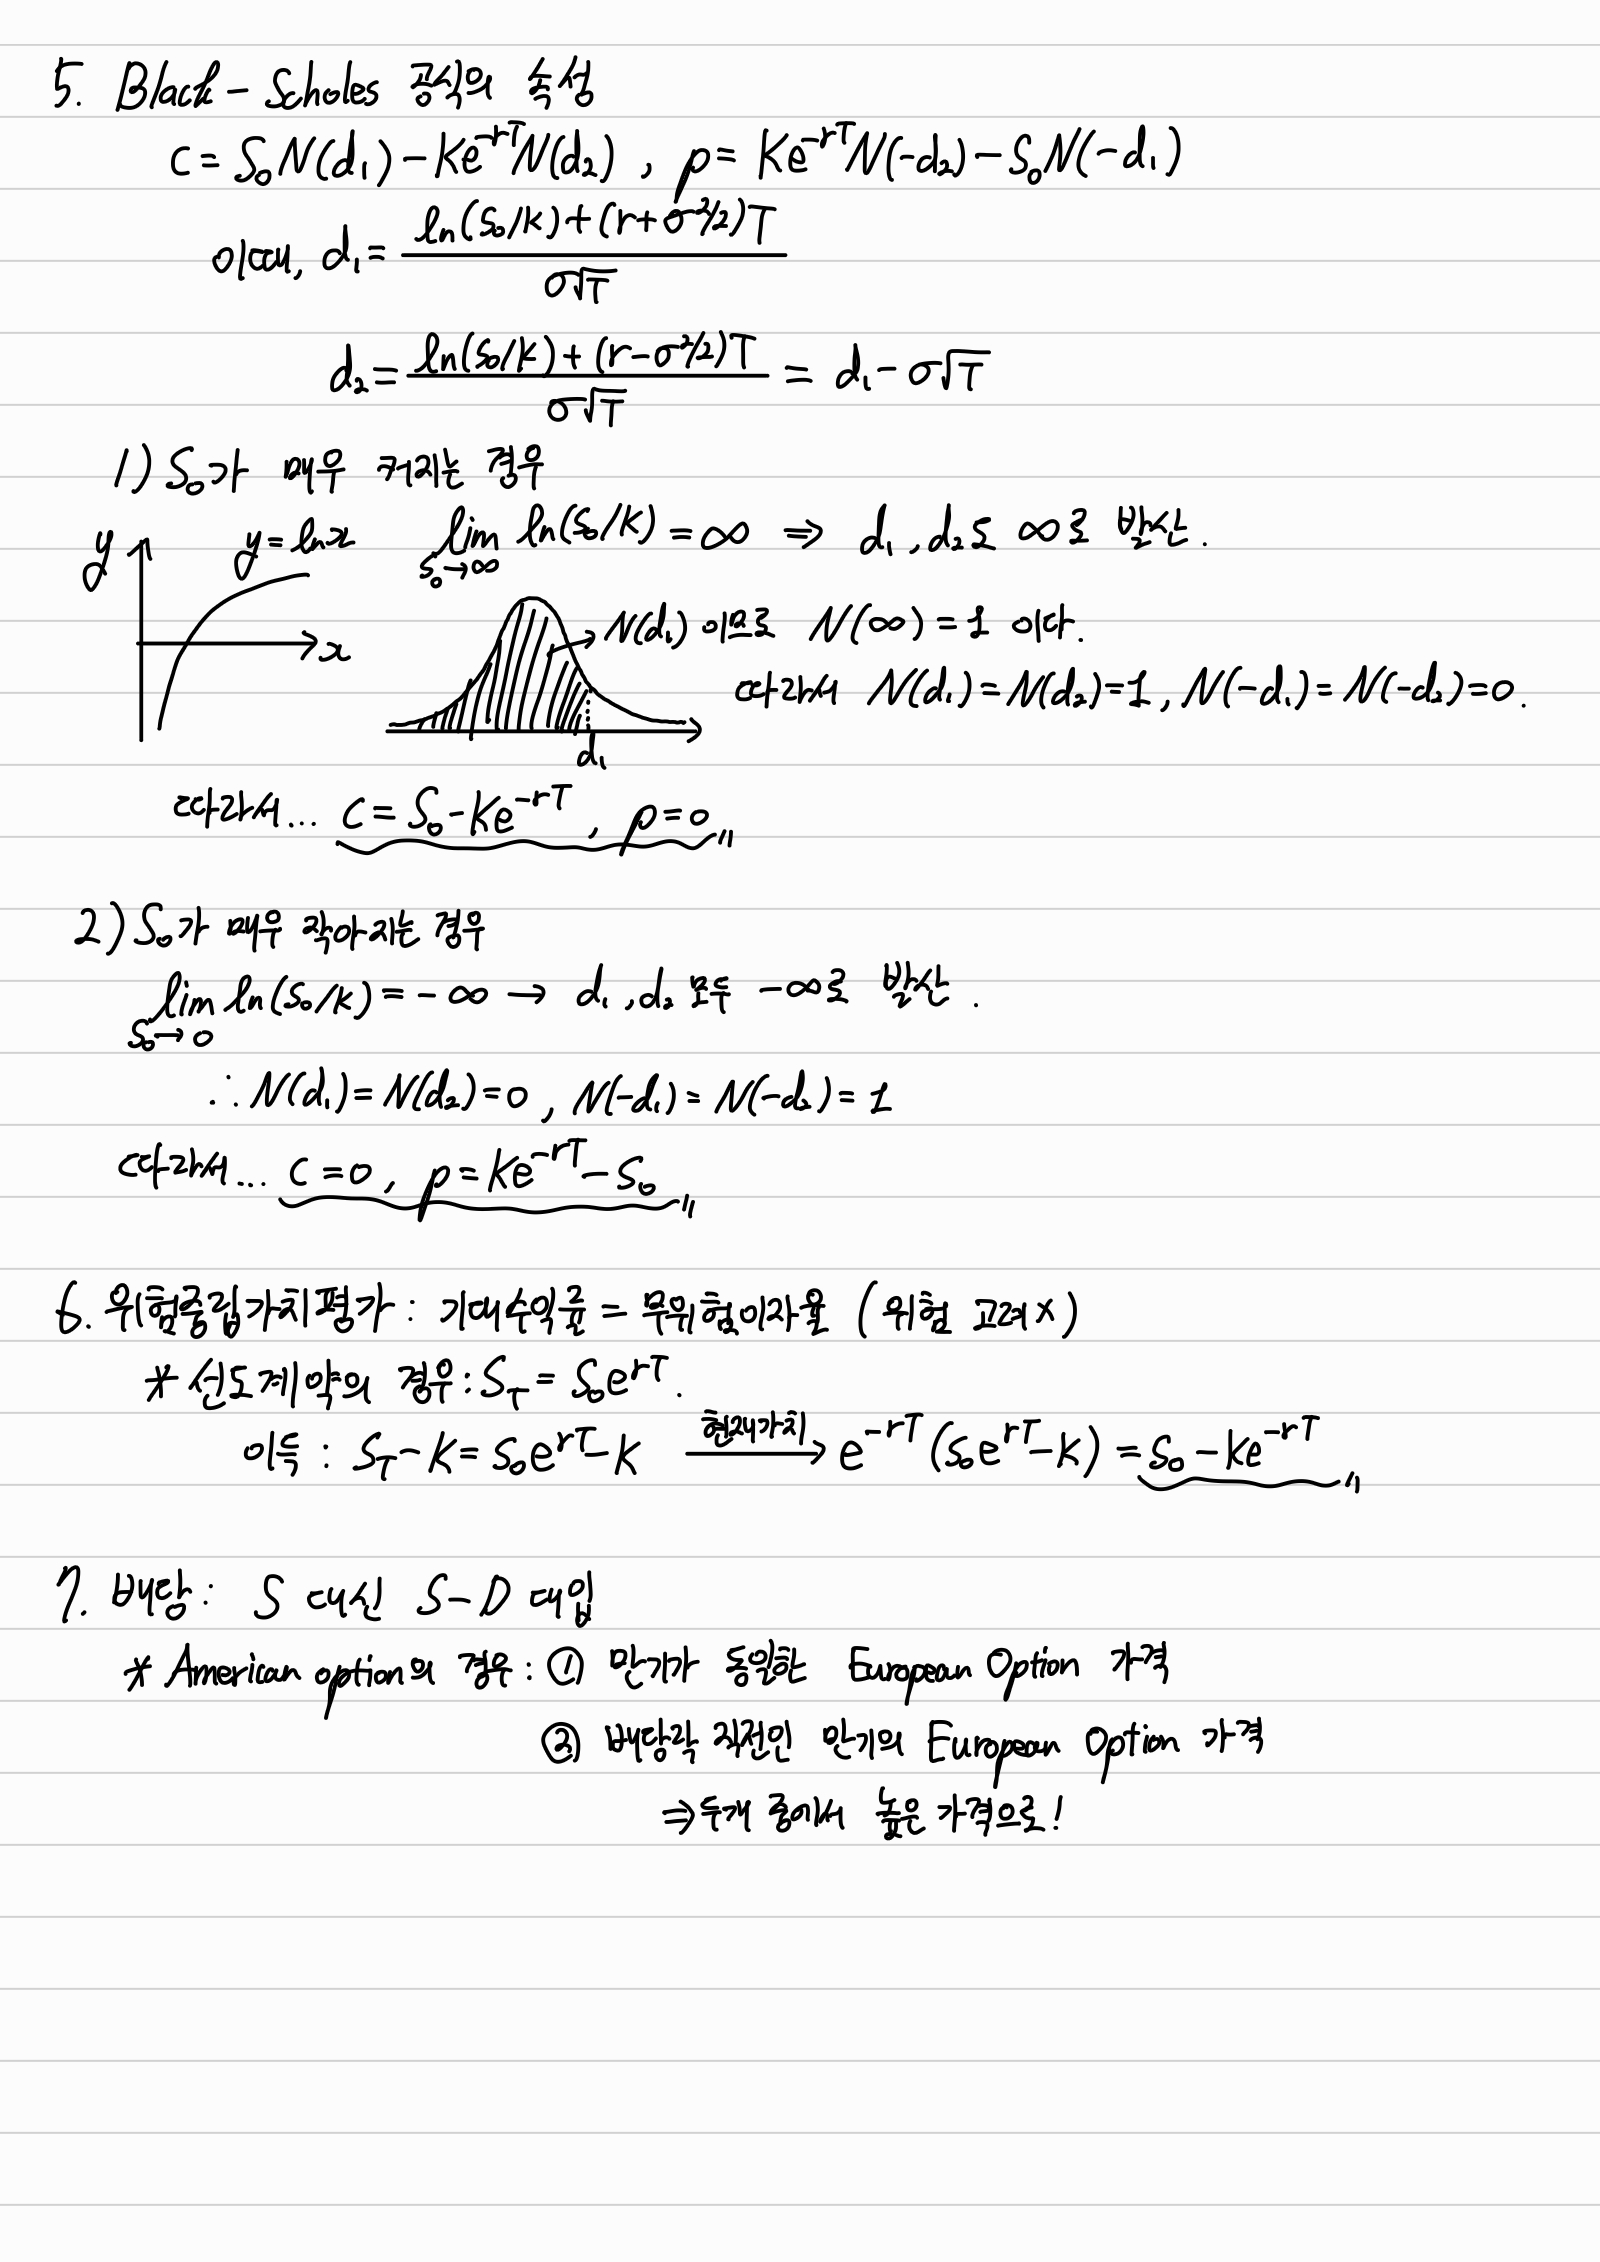 5. Black-Scholes 공식의 속성
c = S₀N(d₁) - Ke^(-rT)N(d₂) , p = Ke^(-rT)N(-d₂) - S₀N(-d₁)
이때, d₁ = (ln(S₀/K) + (r+σ²/2)T) / (σ√T)
d₂ = (ln(S₀/K) + (r-σ²/2)T) / (σ√T) = d₁ - σ√T
1) S₀가 매우 커지는 경우
y y=lnx x
lim S₀→∞ ln(S₀/K) = ∞ ⇒ d₁, d₂도 ∞로 발산.
N(d₁) 이므로 N(∞) = 1 이다.
따라서 N(d₁) = N(d₂) = 1, N(-d₁) = N(-d₂) = 0.
d₁
따라서... c = S₀ - Ke^(-rT) , p = 0 〃
2) S₀가 매우 작아지는 경우
lim S₀→0 ln(S₀/K) = -∞ → d₁, d₂ 모두 -∞로 발산.
∴ N(d₁) = N(d₂) = 0, N(-d₁) = N(-d₂) = 1
따라서... c = 0, p = Ke^(-rT) - S₀ 〃
6. 위험중립가치평가 : 기대수익률 = 무위험이자율 (위험 고려 x)
* 선도계약의 경우 : S_T = S₀e^(rT).
이득 : S_T - K = S₀e^(rT) - K 현재가치→ e^(-rT)(S₀e^(rT) - K) = S₀ - Ke^(-rT) 〃
7. 배당 : S 대신 S-D 대입
* American option의 경우 : ① 만기가 동일한 European Option 가격
② 배당락 직전인 만기의 European Option 가격
⇒ 두개 중에서 높은 가격으로!